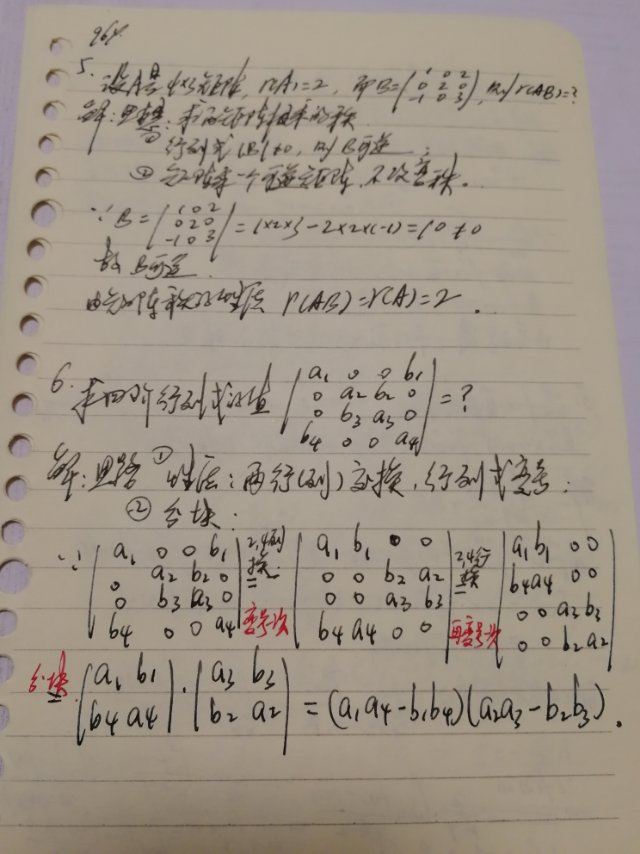 964
5. 设A是4×3矩阵, r(A)=2, 即B=(1 0 2
0 2 0
-1 0 3), 则r(AB)=?
解:思路: ① 求两矩阵相乘的秩.
行列式|B|≠0, 则B可逆;
② 矩阵乘一个可逆矩阵, 不改变秩.
∵ B = |1 0 2
0 2 0
-1 0 3| = 1×2×3-2×2×(-1)=10≠0
故B可逆.
由矩阵秩的性质 r(AB)=r(A)=2.
6. 求四阶行列式的值 |a₁ 0 0 b₁
0 a₂ b₂ 0
0 b₃ a₃ 0
b₄ 0 0 a₄| =?
解:思路 ① 性质:两行(列)交换,行列式变号;
② 分块:
∵ |a₁ 0 0 b₁
0 a₂ b₂ 0
0 b₃ a₃ 0
b₄ 0 0 a₄|
2,4列
换
=
变号一次
|a₁ b₁ 0 0
0 0 b₂ a₂
0 0 a₃ b₃
b₄ a₄ 0 0|
2,4行
换
=
再变号一次
|a₁ b₁ 0 0
b₄ a₄ 0 0
0 0 a₃ b₃
0 0 b₂ a₂|
分块
= |a₁ b₁
b₄ a₄| · |a₃ b₃
b₂ a₂| = (a₁a₄-b₁b₄)(a₂a₃-b₂b₃).